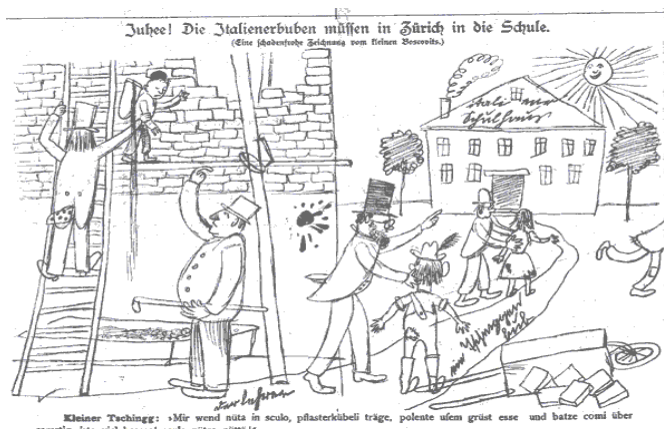 Juhee! Die Italienerbuben müssen in Zürich in die Schule.
(Eine schadenfrohe Zeichnung vom kleinen Boscovits.)
Schulhaus
der Lehrer
Kleiner Tschingg: »Mir wend nüta in sculo, pflasterkübeli träge, polente ufem grüst esse und batze comi über